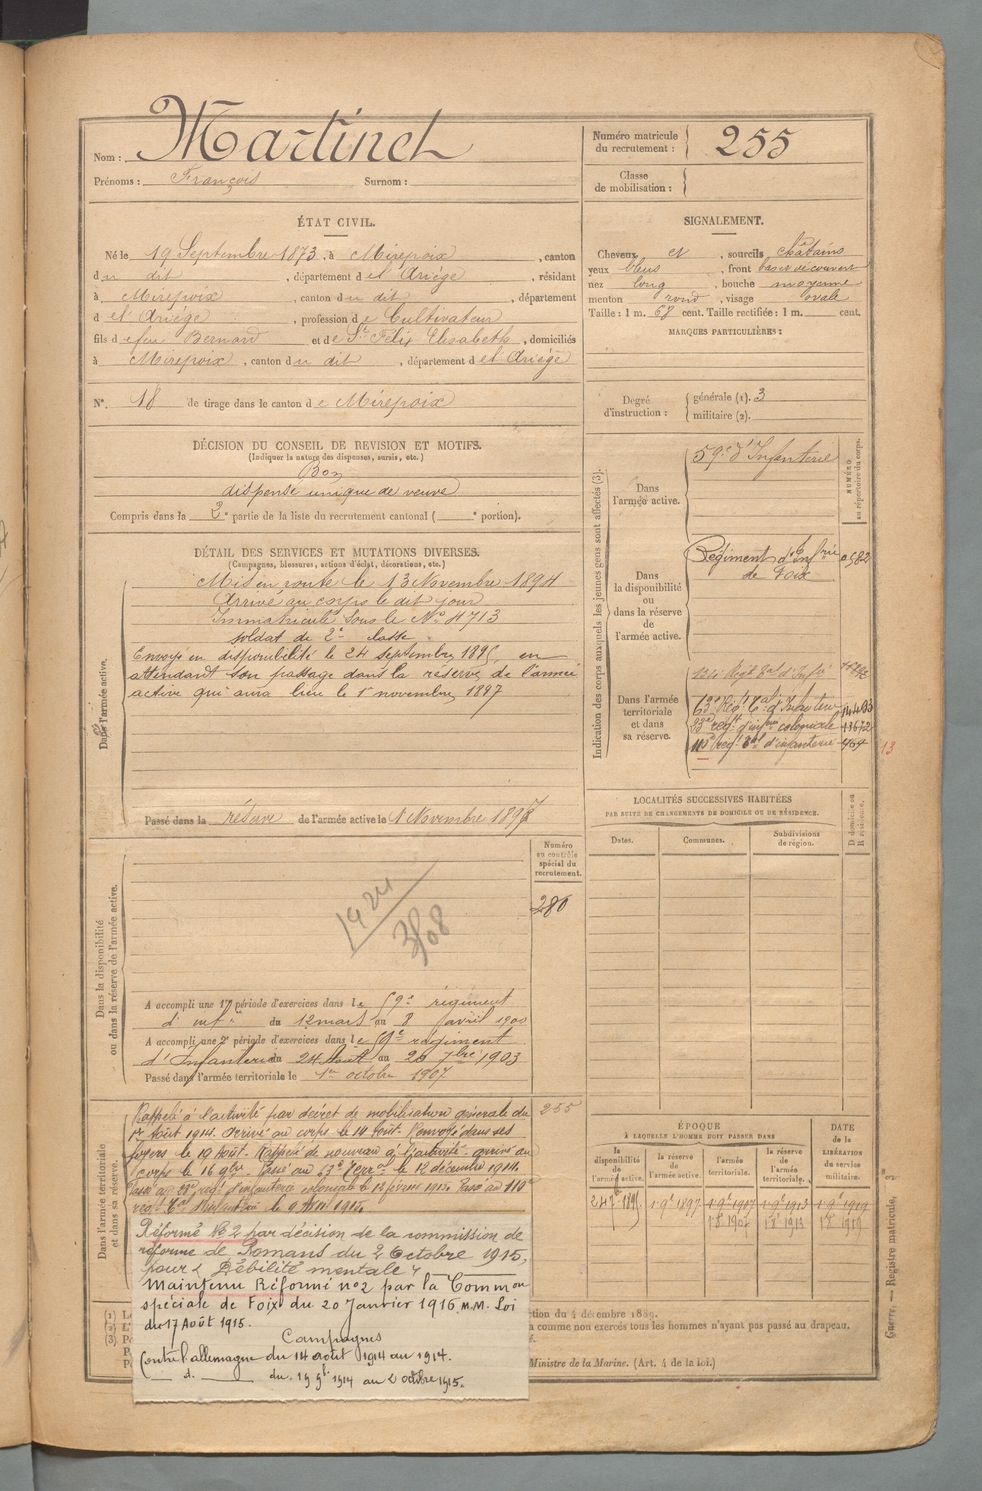 Nom : Martinet
Prénoms : François Surnom :
Numéro matricule du recrutement : 255
Classe de mobilisation :
ÉTAT CIVIL.
Né le 19 Septembre 1873, à Mirepoix, canton
du dit, département de l'Ariège, résidant
à Mirepoix, canton du dit, département
de l'Ariège, profession de Cultivateur
fils de feu Bernard et de St Félix Elisabeth, domiciliés
à Mirepoix, canton du dit, département de l'Ariège
N°. 18 de tirage dans le canton de Mirepoix
SIGNALEMENT.
Cheveux et, sourcils châtains
yeux bleus, front bas et découvert
nez long, bouche moyenne
menton rond, visage ovale
Taille : 1 m. 68 cent. Taille rectifiée : 1 m. cent.
MARQUES PARTICULIÈRES :
Degré d'instruction : générale (1). 3
militaire (2).
DÉCISION DU CONSEIL DE REVISION ET MOTIFS.
(Indiquer la nature des dispenses, sursis, etc.)
Bon
dispensé unique de veuve
Compris dans la 2e partie de la liste du recrutement cantonal ( e portion).
DÉTAIL DES SERVICES ET MUTATIONS DIVERSES.
(Campagnes, blessures, actions d'éclat, décorations, etc.)
Dans l'armée active.
Mis en route le 13 Novembre 1894
Arrivé au corps le dit jour
Immatriculé sous le N° 4713
soldat de 2e classe
Envoyé en disponibilité le 24 septembre 1895, en
attendant son passage dans la réserve de l'armée
active qui aura lieu le 1er novembre 1897
Passé dans la réserve de l'armée active le 1 Novembre 1897
Indication des corps auxquels les jeunes gens sont affectés (3).
NUMÉRO au répertoire du corps.
Dans l'armée active.
59e d'Infanterie
Dans la disponibilité ou dans la réserve de l'armée active.
Régiment d'Infrie 0582
de Foix
Dans l'armée territoriale et dans sa réserve.
134e Régt Tal d'Infie
63e Régt Tal d'Infanterie 14493
33e régt d'infrie coloniale 13672
110e régt Tal d'infanterie 464
13
LOCALITÉS SUCCESSIVES HABITÉES
PAR SUITE DE CHANGEMENTS DE DOMICILE OU DE RÉSIDENCE.
Dates. Communes. Subdivisions de région. D domicile ou R résidence.
Dans la disponibilité ou dans la réserve de l'armée active.
Numéro au contrôle spécial du recrutement.
286
A accompli une 1re période d'exercices dans le 59e régiment
d'infie du 12 mars au 8 avril 1900
A accompli une 2e période d'exercices dans le 59e régiment
d'Infanterie du 24 Août au 20 7bre 1903
Passé dans l'armée territoriale le 1er octobre 1907
Dans l'armée territoriale et dans sa réserve.
255
Rappelé à l'activité par décret de mobilisation générale du
1er Août 1914. Arrivé au corps le 14 Août. Renvoyé dans ses
foyers le 19 Août. Rappelé de nouveau à l'activité arrivé au
corps le 16 9bre. Passé au 63e Terral le 12 décembre 1914.
Passé au 33e régt d'infanterie coloniale le 12 février 1915. Passé au 110e
Réformé N°2 par décision de la commission de
réforme de Romans du 2 Octobre 1915,
pour « Débilité mentale »
Maintenu Réformé n°2 par la Common
spéciale de Foix du 20 Janvier 1916, M.M. Loi
du 17 Août 1915.
Campagnes
Contre l'allemagne du 14 août 1914 au 1914.
d. du 19 9bre 1914 au 2 octobre 1915.
ÉPOQUE
À LAQUELLE L'HOMME DOIT PASSER DANS
la disponibilité de l'armée active. la réserve de l'armée active. l'armée territoriale. la réserve de l'armée territoriale.
DATE de la LIBÉRATION du service militaire.
24 7bre 1895 1 9bre 1897 1 9bre 1907 1 9bre 1913 1 9bre 1919
1 8bre 1907 1 8bre 1913 1 8bre 1919
Guerre. — Registre matricule,
ction du 4 décembre 1889.
à comme non exercés tous les hommes n'ayant pas passé au drapeau.
Ministre de la Marine. (Art. 4 de la loi.)